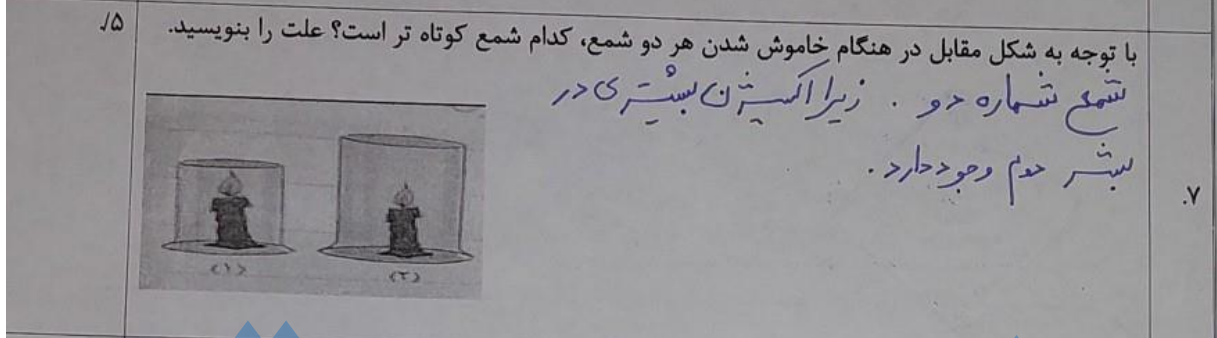 ۷.
با توجه به شکل مقابل در هنگام خاموش شدن هر دو شمع، کدام شمع کوتاه تر است؟ علت را بنویسید.
۵/.
شمع شماره دو . زیرا اکسیژن بیشتری در
بشر دوم وجود دارد .
(۱)
(۲)